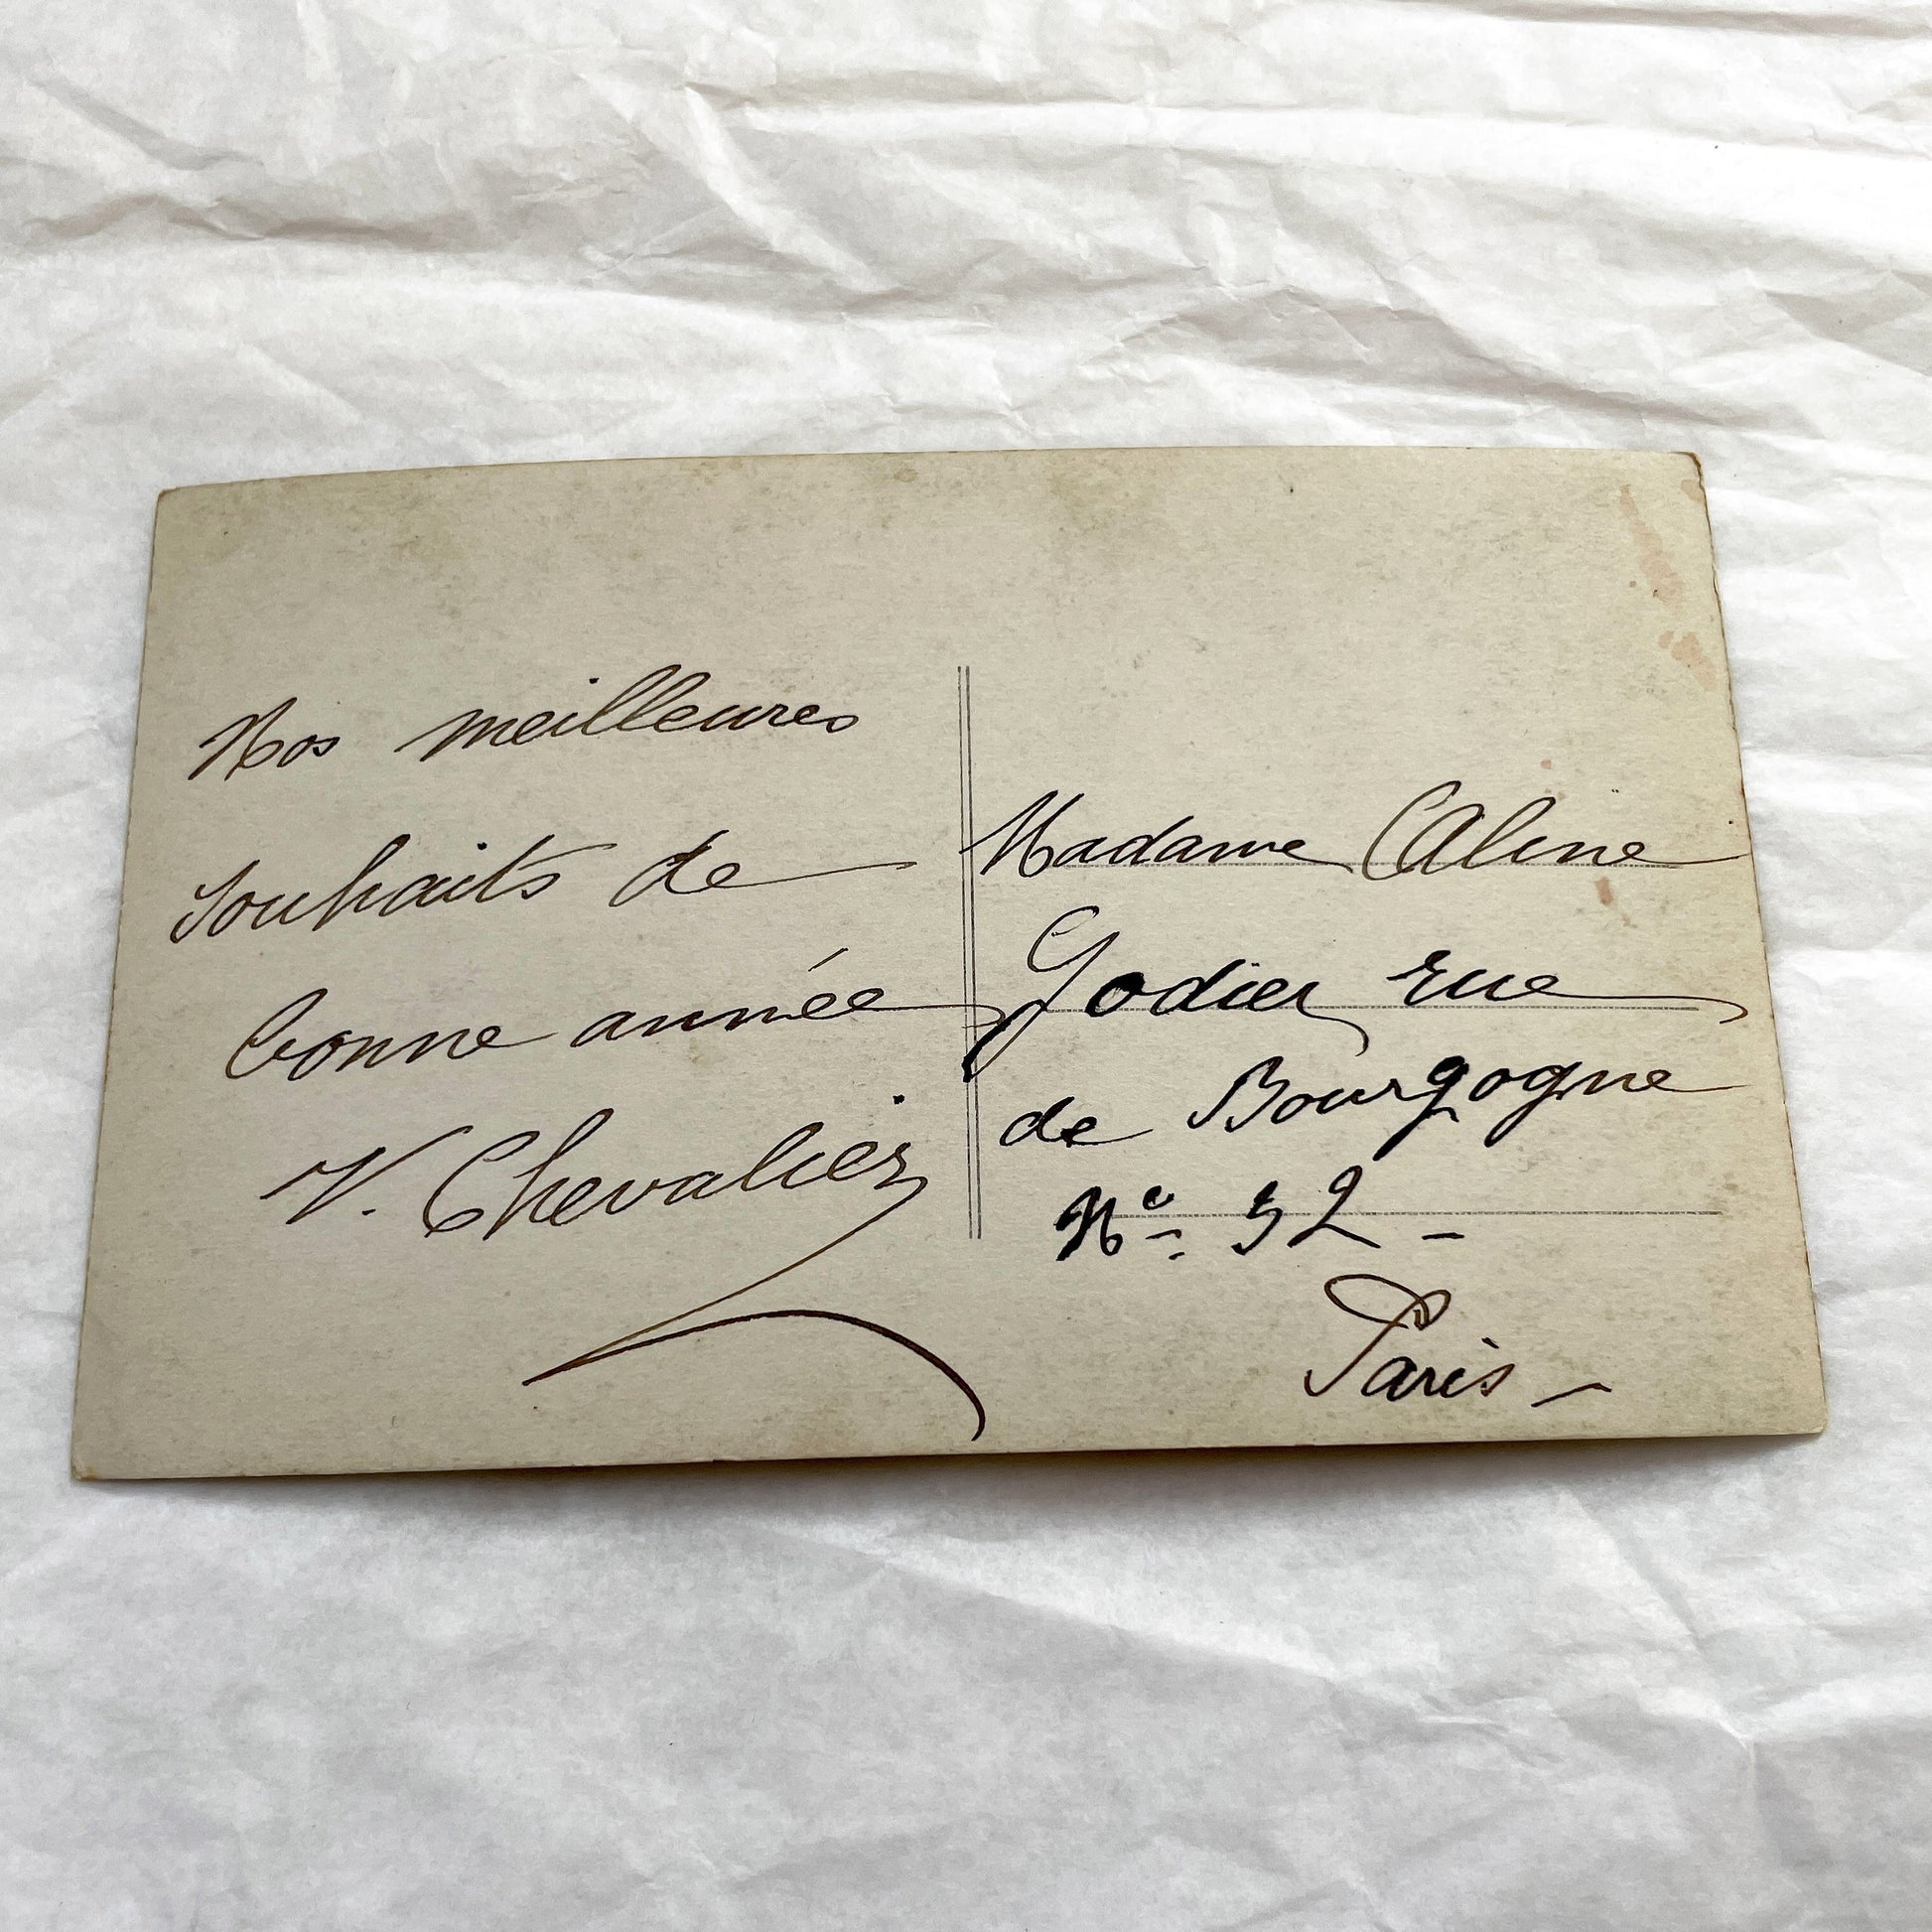 Nos meilleures
souhaits de
bonne année
V. Chevalier
Madame Aline
Godier rue
de Bourgogne
No 52 -
Paris -